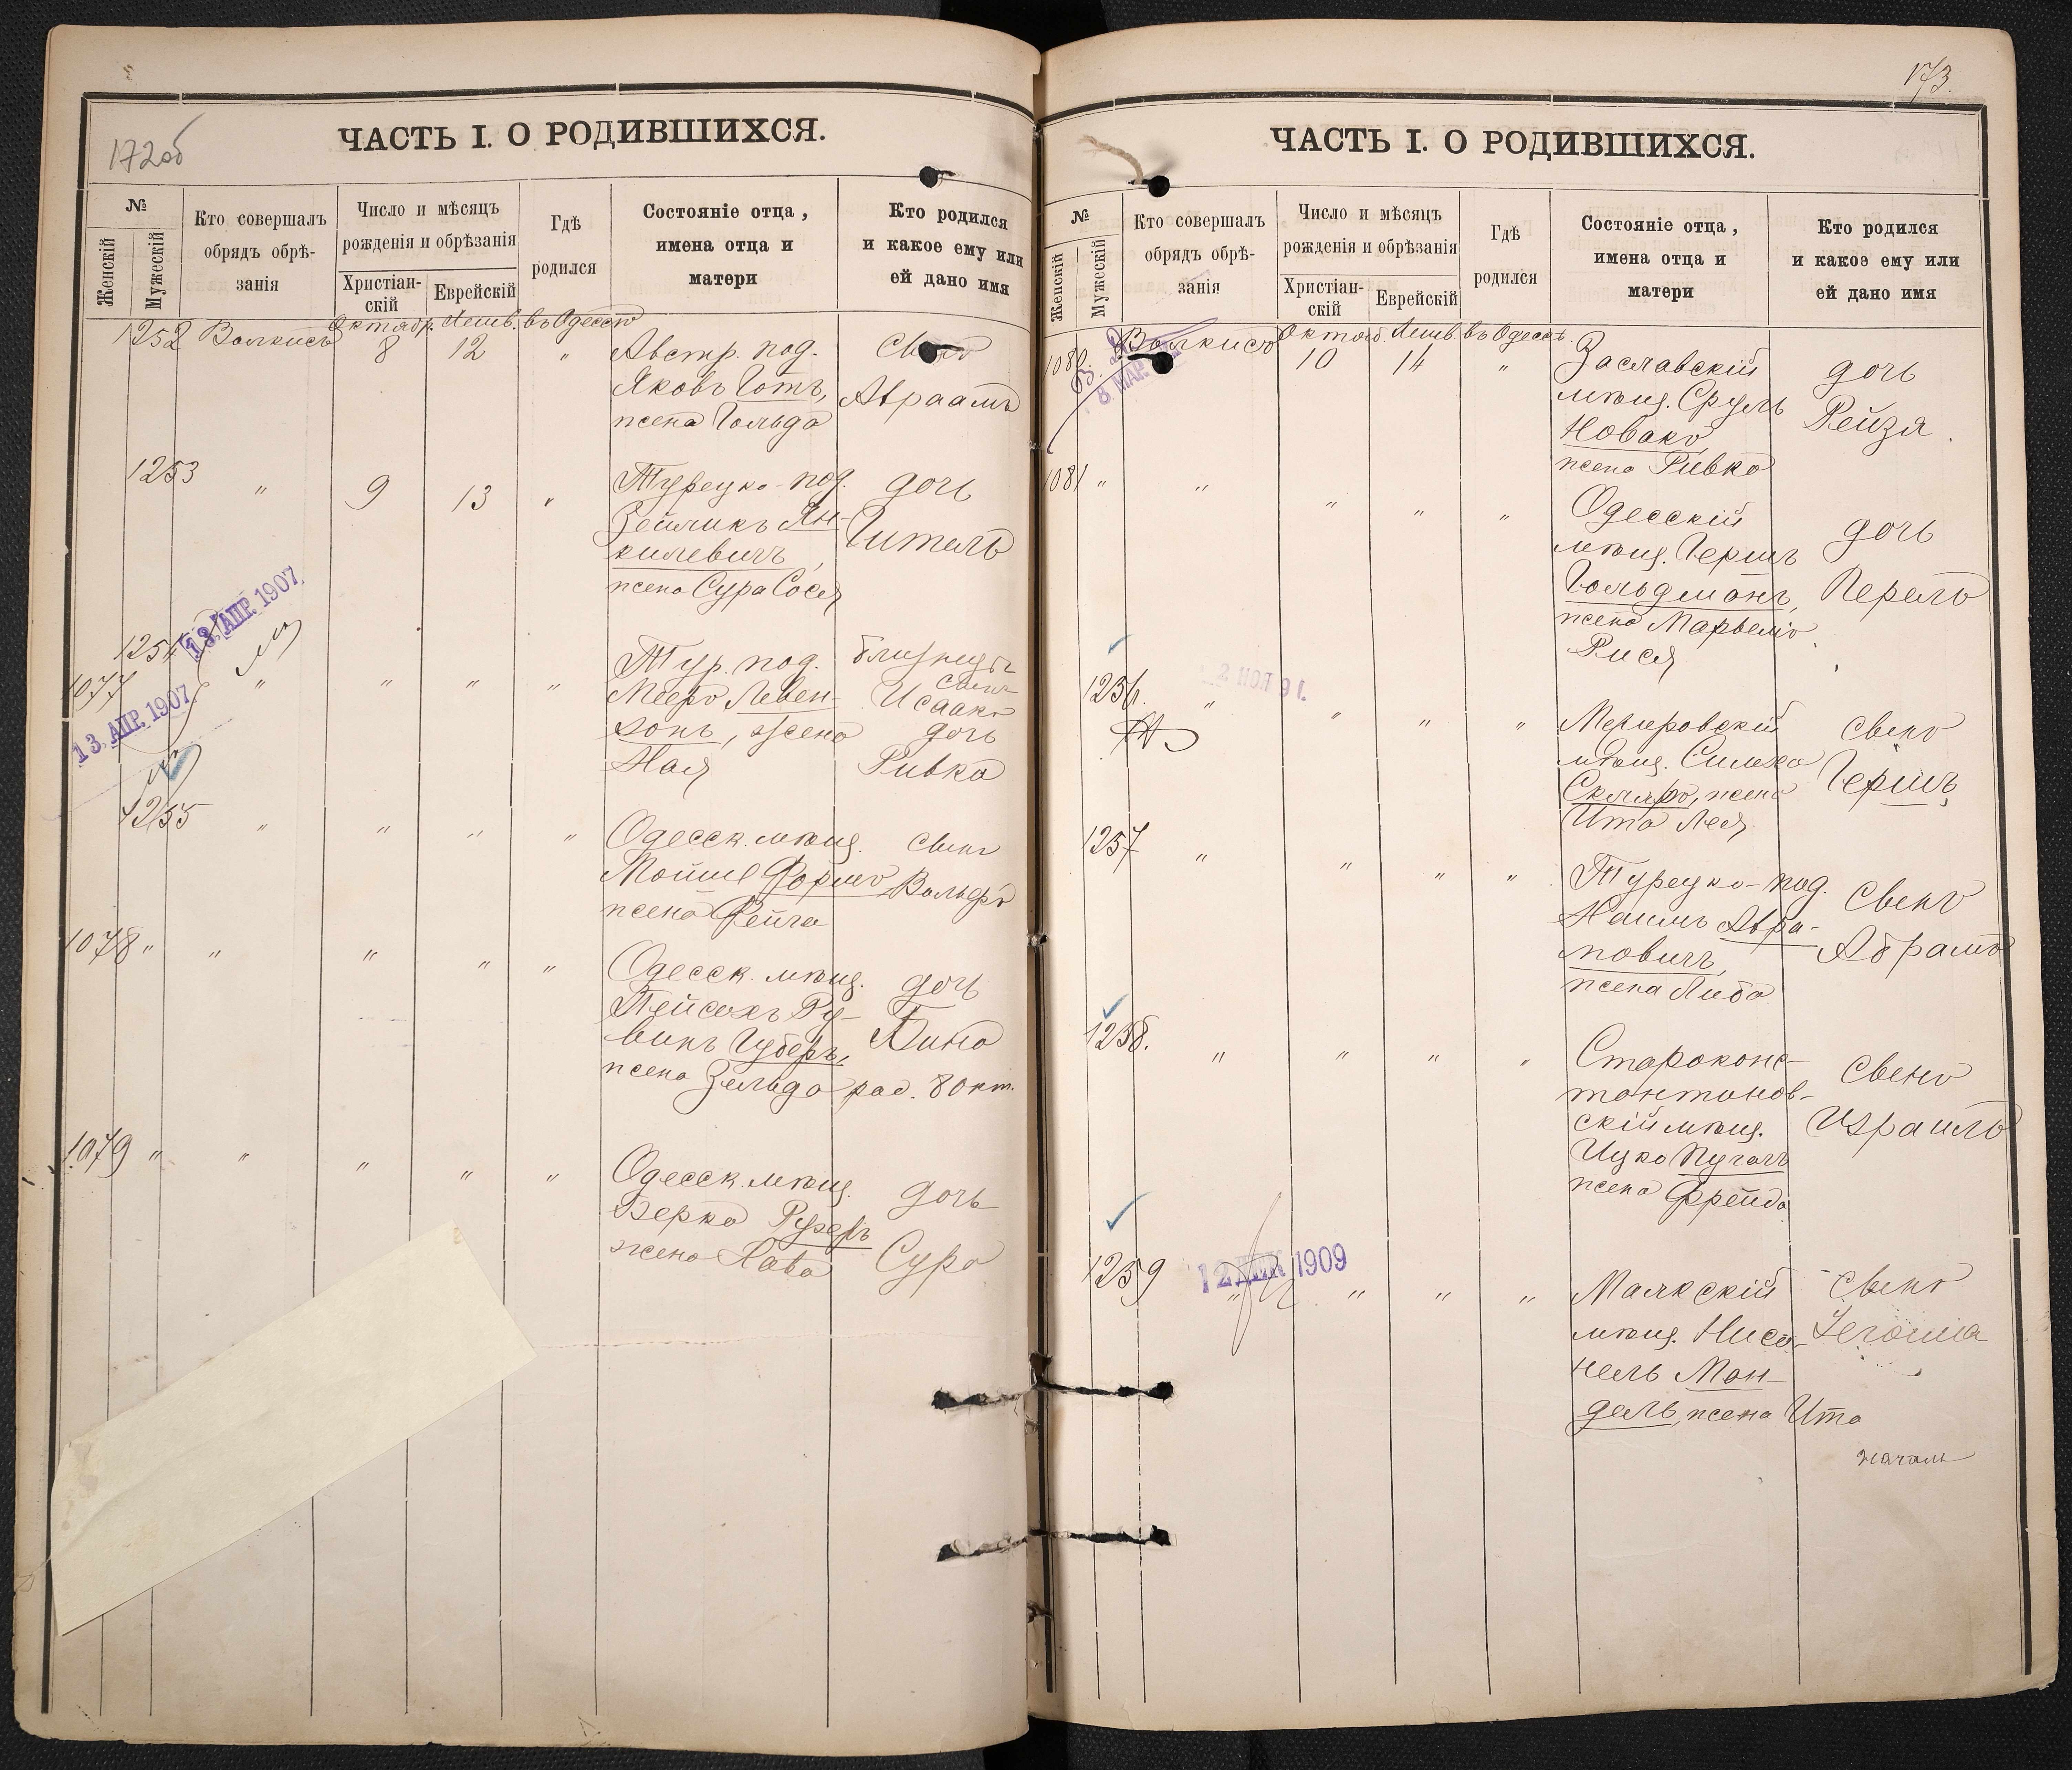 172об
ЧАСТЬ I. О РОДИВШИХСЯ.
№
Женскій
Мужескій
Кто совершалъ
обрядъ обрѣ-
занія
Число и мѣсяцъ
рожденія и обрѣзанія
Христіан-
скій
Еврейскій
Гдѣ
родился
Состояніе отца,
имена отца и
матери
Кто родился
и какое ему или
ей дано имя
1252 Волкисъ Октябр. 8 Хешв. 12 въ Одессѣ "
Австр. под.
Яковъ Готъ,
жена Гольда
сынъ
Авраамъ
1253 " 9 13 "
Турецко-под.
Зейликъ Ян-
килевичъ,
жена Сура Сося
дочь
Гитель
13. АПР. 1907
1254
1077 " " " "
13. АПР. 1907
Тур. под.
Мееръ Левен-
зонъ, жена
Хая
близнецы
сынъ
Исаакъ
дочь
Ривка
1255 " " " "
Одесск. мѣщ.
Мойше Формъ
жена Рейга
сынъ
Вольфъ
1078 " " " " "
Одесск. мѣщ.
Пейсахъ Ру-
винъ Губеръ,
жена Зельда
дочь
Бина
1079 " " " " "
Одесск. мѣщ.
Берко Рузеръ
жена Хава
дочь
Сура
173.
ЧАСТЬ I. О РОДИВШИХСЯ.
№
Женскій
Мужескій
Кто совершалъ
обрядъ обрѣ-
занія
Число и мѣсяцъ
рожденія и обрѣзанія
Христіан-
скій
Еврейскій
Гдѣ
родился
Состояніе отца,
имена отца и
матери
Кто родился
и какое ему или
ей дано имя
1080 Волкисъ Октяб. 10 Хешв. 14 въ Одессѣ. "
8 МАР
Заславскій
мѣщ. Сруль
Новакъ
жена Ривка
дочь
Рейзя.
1081 " " " " "
Одесскій
мѣщ. Гершъ
Гольдманъ,
жена
Рися
дочь
Перель
1256. " " " "
мѣщ. Симха
Скляръ, жена
Ита Лея
сынъ
Гершъ
1257 " " " "
Турецко-под.
Хаимъ Абра-
мовичъ,
жена Либа
сынъ
Абрамъ
1258. " " " "
Староконс-
тантинов-
скій мѣщ.
Ицко Пугачъ
жена Фрейда
сынъ
Израиль
1259 " " " "
12 ДЕК 1909
Маякскій
мѣщ. Хисъ-
кель Ман-
дель, жена Ита
сынъ
Іегошиа